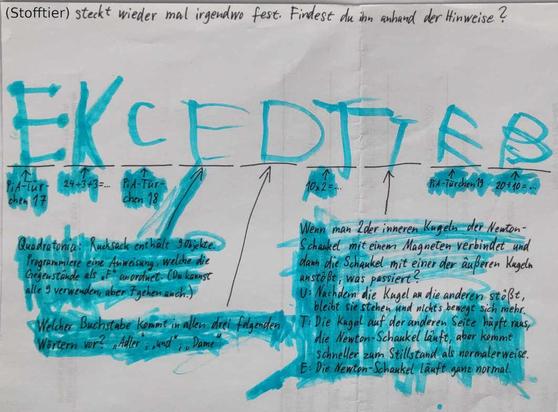 (Stofftier) steckt wieder mal irgendwo fest. Findest du ihn anhand der Hinweise?
E K C E D T T E B
PiA-Tür-
chen 17
24÷3+3=...
PiA-Tür-
chen 18
10x2=...
PiA-Türchen 19
20÷10=...
Quadratonia: Rucksack enthält 9 Objekte.
Programmiere eine Anweisung, welche die
Gegenstände als „F“ anordnet. (Du kannst
alle 9 verwenden, aber 7 gehen auch.)
Welcher Buchstabe kommt in allen drei folgenden
Wörtern vor? „Adler“, „und“, „Dame“
Wenn man 2 der inneren Kugeln der Newton-
Schaukel mit einem Magneten verbindet und
dann die Schaukel mit einer der äußeren Kugeln
anstößt, was passiert?
U: Nachdem die Kugel an die anderen stößt,
bleibt sie stehen und nichts bewegt sich mehr.
T: Die Kugel auf der anderen Seite hüpft raus,
die Newton-Schaukel läuft, aber kommt
schneller zum Stillstand als normalerweise.
E: Die Newton-Schaukel läuft ganz normal.